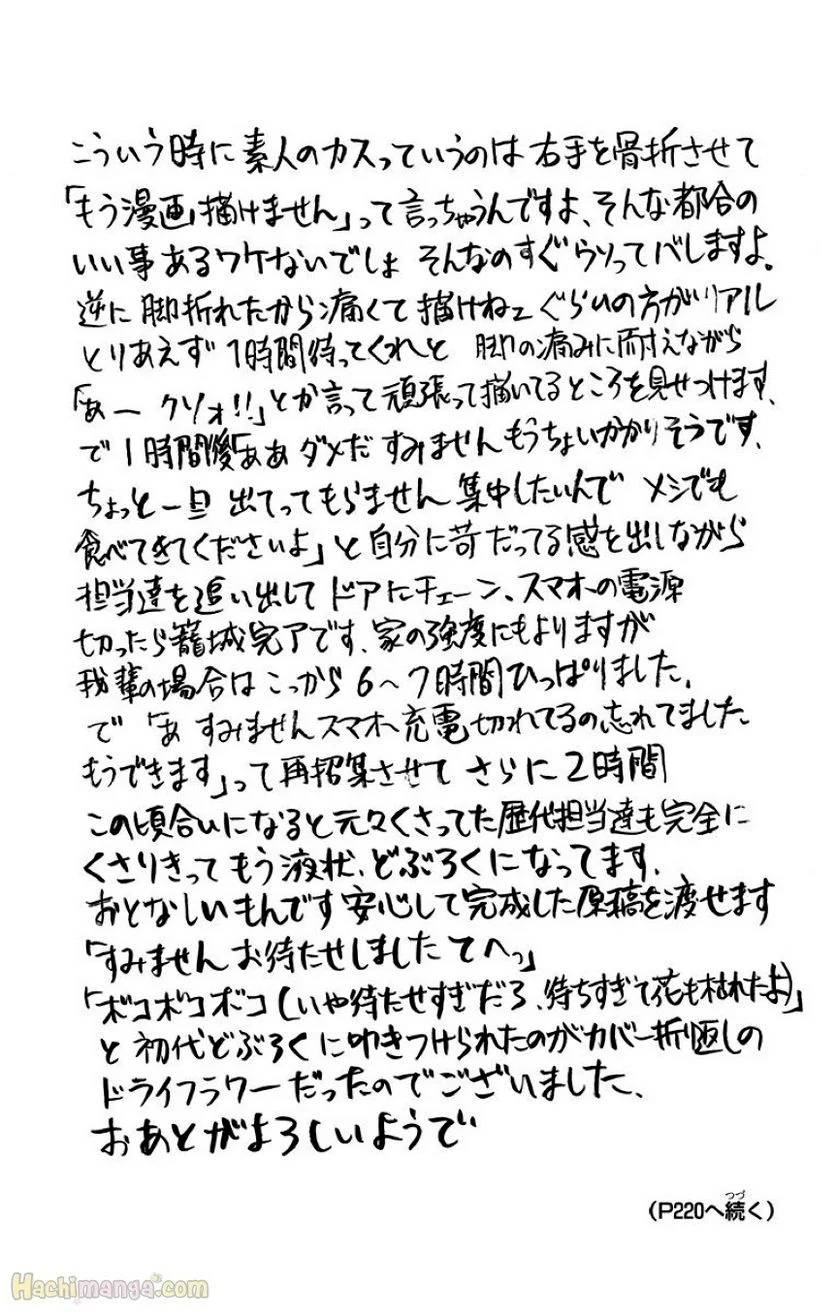 こういう時に素人のカスっていうのは右手を骨折させて
「もう漫画描けません」って言っちゃうんですよ、そんな都合の
いい事あるワケないでしょ そんなのすぐウソってバレますよ。
逆に脚折れたから痛くて描けねェぐらいの方がリアル
とりあえず1時間待ってくれと 脚の痛みに耐えながら
「あー クソォ!!」とか言って頑張って描いてるところを見せつけます、
で1時間後「ああ ダメだ すみません もうちょいかかりそうです、
ちょっと一旦 出てってもらません 集中したいんで メシでも
食べてきてくださいよ」と自分に苛だってる感を出しながら
担当達を追い出して ドアにチェーン、スマホの電源
切ったら籠城完了です、家の強度にもよりますが
我輩の場合はこっから6~7時間ひっぱりました、
で 「あ すみませんスマホ充電切れてるの忘れてました
もうできます」って再招集させて さらに2時間
この頃合いになると元々くさってた歴代担当達も完全に
くさりきって もう液状、どぶろくになってます、
おとなしいもんです安心して完成した原稿を渡せます
「すみません お待たせしました てへっ」
「ボコボコボコ(いや待たせすぎだろ、待ちすぎて花も枯れたよ)」
と初代どぶろくに叩きつけられたのがカバー折り返しの
ドライフラワーだったのでございました、
おあとがよろしいようで
(P220へ続く)
つづ
Hachimanga.com